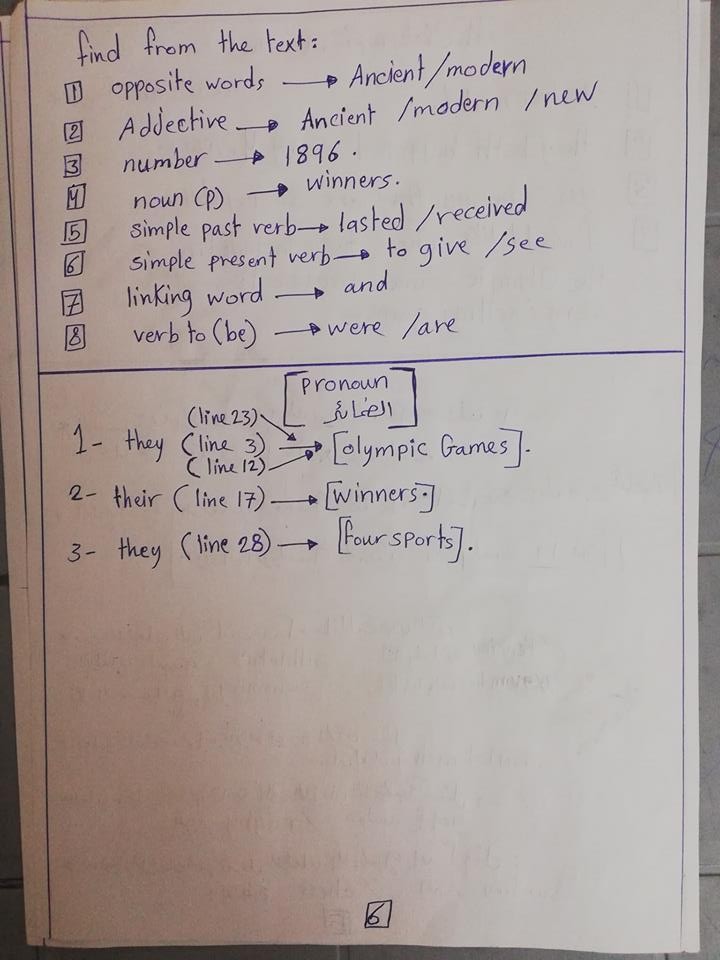 find from the text:
1 opposite words → Ancient/modern
2 Addjective → Ancient /modern /new
3 number → 1896.
4 noun (p) → winners.
5 simple past verb → lasted /received
6 simple present verb → to give /see
7 linking word → and
8 verb to (be) → were /are
[pronoun
الضمائر]
(line 23)
1- they (line 3) → [olympic Games].
(line 12)
2- their (line 17) → [winners.]
3- they (line 28) → [four sports].
6